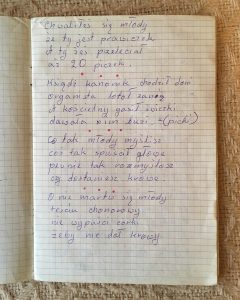 Chwaliłeś się młody
że ty jest prawiczek
A ty żeś przeleciał
aż 20 piczek.
Ksiądz kanonik chodził dom
organista latał za nią
A kościelny gasił świczki
dawała im buzi -(pichi)
Co tak młody myślisz
coś tak spuścił głowę
pewnie tak rozmyślosz
czy dostaniesz krowę.
O nie martw się młody
teściu honorowy
nie wypuści córki
żeby nie dał krowy.